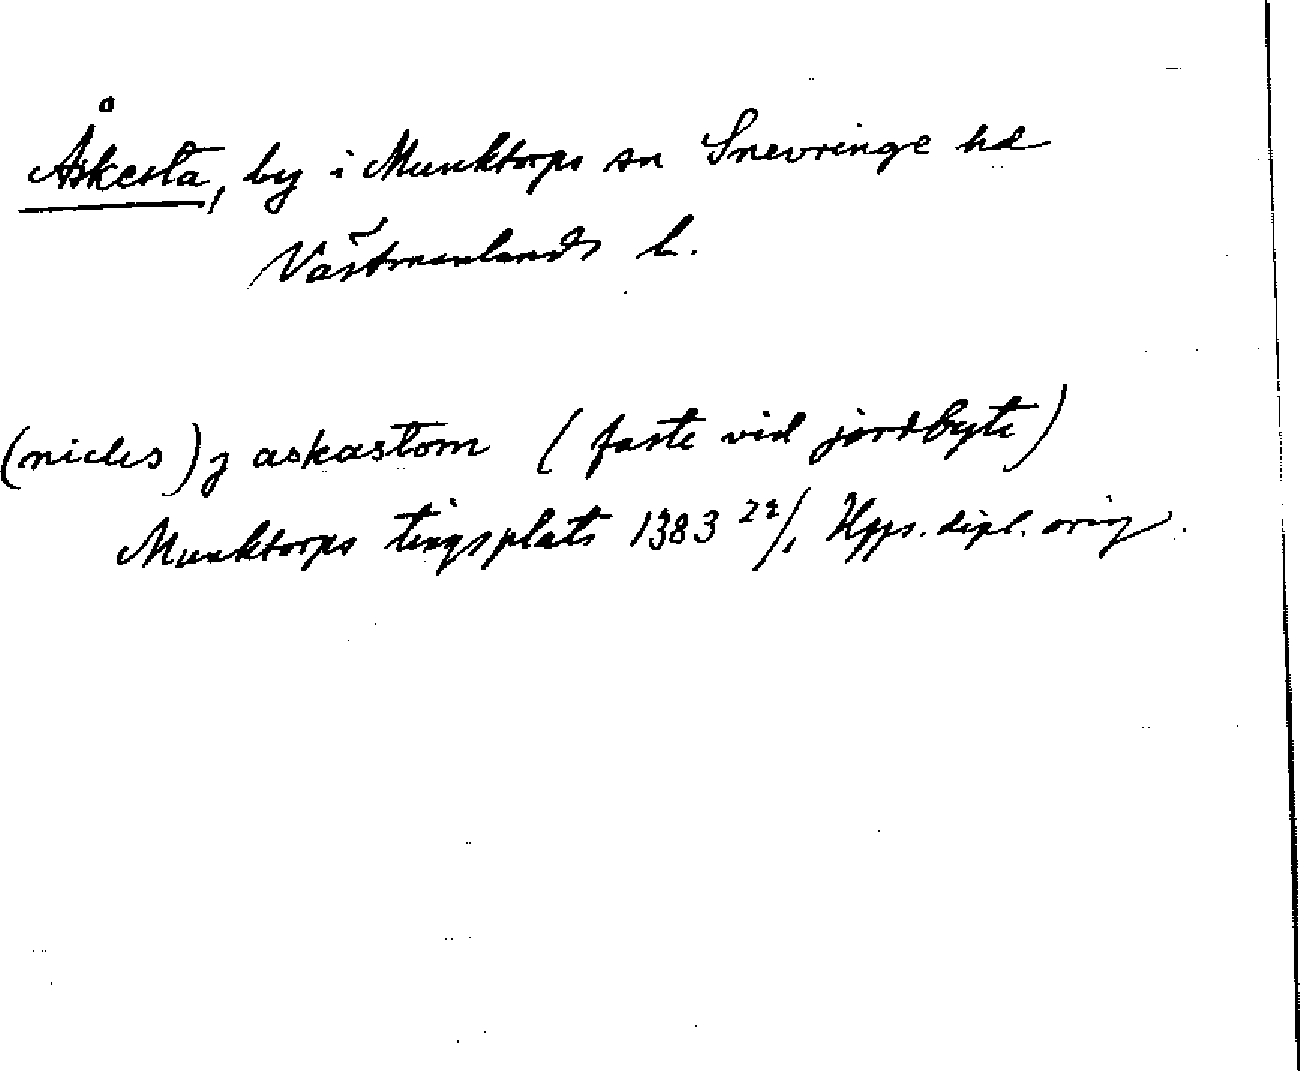 Åskesta, by i Munktorps sn Snevringe hd
Västmanlands l.
(niclis) j askastom (faste vid jordbyte)
Munktorps tingsplats 1383 22/1 Upps. dipl. orig.